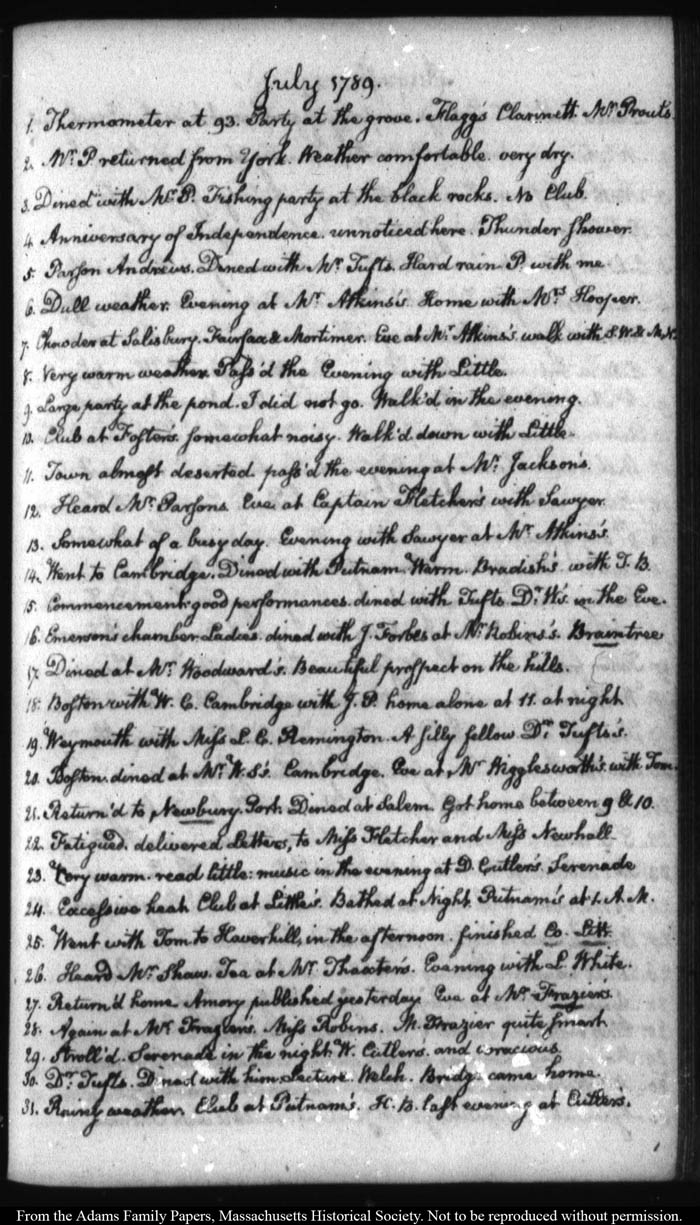 July 1789.
1. Thermometer at 93. Party at the grove. Flagg's Clarinett. Mr Prout's.
2. Mr. P returned from York. Weather comfortable. very dry.
3. Dined with Mr. P. Fishing party at the black rocks. No Club.
4. Anniversary of Independence. unnoticed here. Thunder shower.
5. Parson Andrews. Dined with Mr. Tufts. Hard rain P. with me.
6. Dull weather. Evening at Mr. Atkins's. Home with Mrs Hooper.
7. Chowder at Salisbury. Fairfax & Mortimer. Eve at Mr. Atkins's walk with S. W. & M. N.
8. Very warm weather. Pass'd the Evening with Little.
9. Large party at the pond. I did not go. Walk'd in the evening.
10. Club at Foster's. somewhat noisy. Walk'd down with Little.
11. Town almost deserted. pass'd the evening at Mr. Jackson's.
12. Heard Mr. Parsons. Eve at Captain Fletcher's with Sawyer.
13. Somewhat of a busy day. Evening with Sawyer at Mr. Atkins's.
14. Went to Cambridge. Dined with Putnam. Warm. Bradish's. with T. B.
15. Commencement. good performances. dined with Tufts. Dr. W's. in the Eve.
16. Emerson's chamber. Ladies. dined with J. Forbes at Mr. Robins's. Braintree
17. Dined at Mr. Woodward's. Beautiful prospect on the hills.
18. Boston with W. C. Cambridge with J. P. home alone at 11. at night
19. Weymouth with Miss L. C. Remington. A silly fellow. Dr. Tufts's.
20. Boston. dined at Mr. W. S's. Cambridge. Eve at Mr Wigglesworth's. with Tom.
21. Return'd to Newbury-Port. Dined at Salem. Got home between 9 & 10.
22. Fatigued. delivered Letters, to Miss Fletcher and Miss Newhall.
23. Very warm. read little: music in the evening at D. Cutler's. Serenade
24. Excessive heat Club at Little's. Bathed at Night. Putnam's at 1. A. M.
25. Went with Tom to Haverhill, in the afternoon. finished Co. Litt.
26. Heard Mr. Shaw. Tea at Mr. Thaxter's. Evening with L. White.
27. Return'd home. Amory published yesterday. Eve at Mr Frazier's.
28. Again at Mr. Frazier's. Miss Robins. M. Frazier quite smart
29. Stroll'd. Serenade in the night. W. Cutler's. and voracious.
30. Dr. Tufts. Dined with him. Lecture. Welch. Bridge came home.
31. Rainy weather. Club at Putnam's. H. B. last evening at Cutler's.
From the Adams Family Papers, Massachusetts Historical Society. Not to be reproduced without permission.